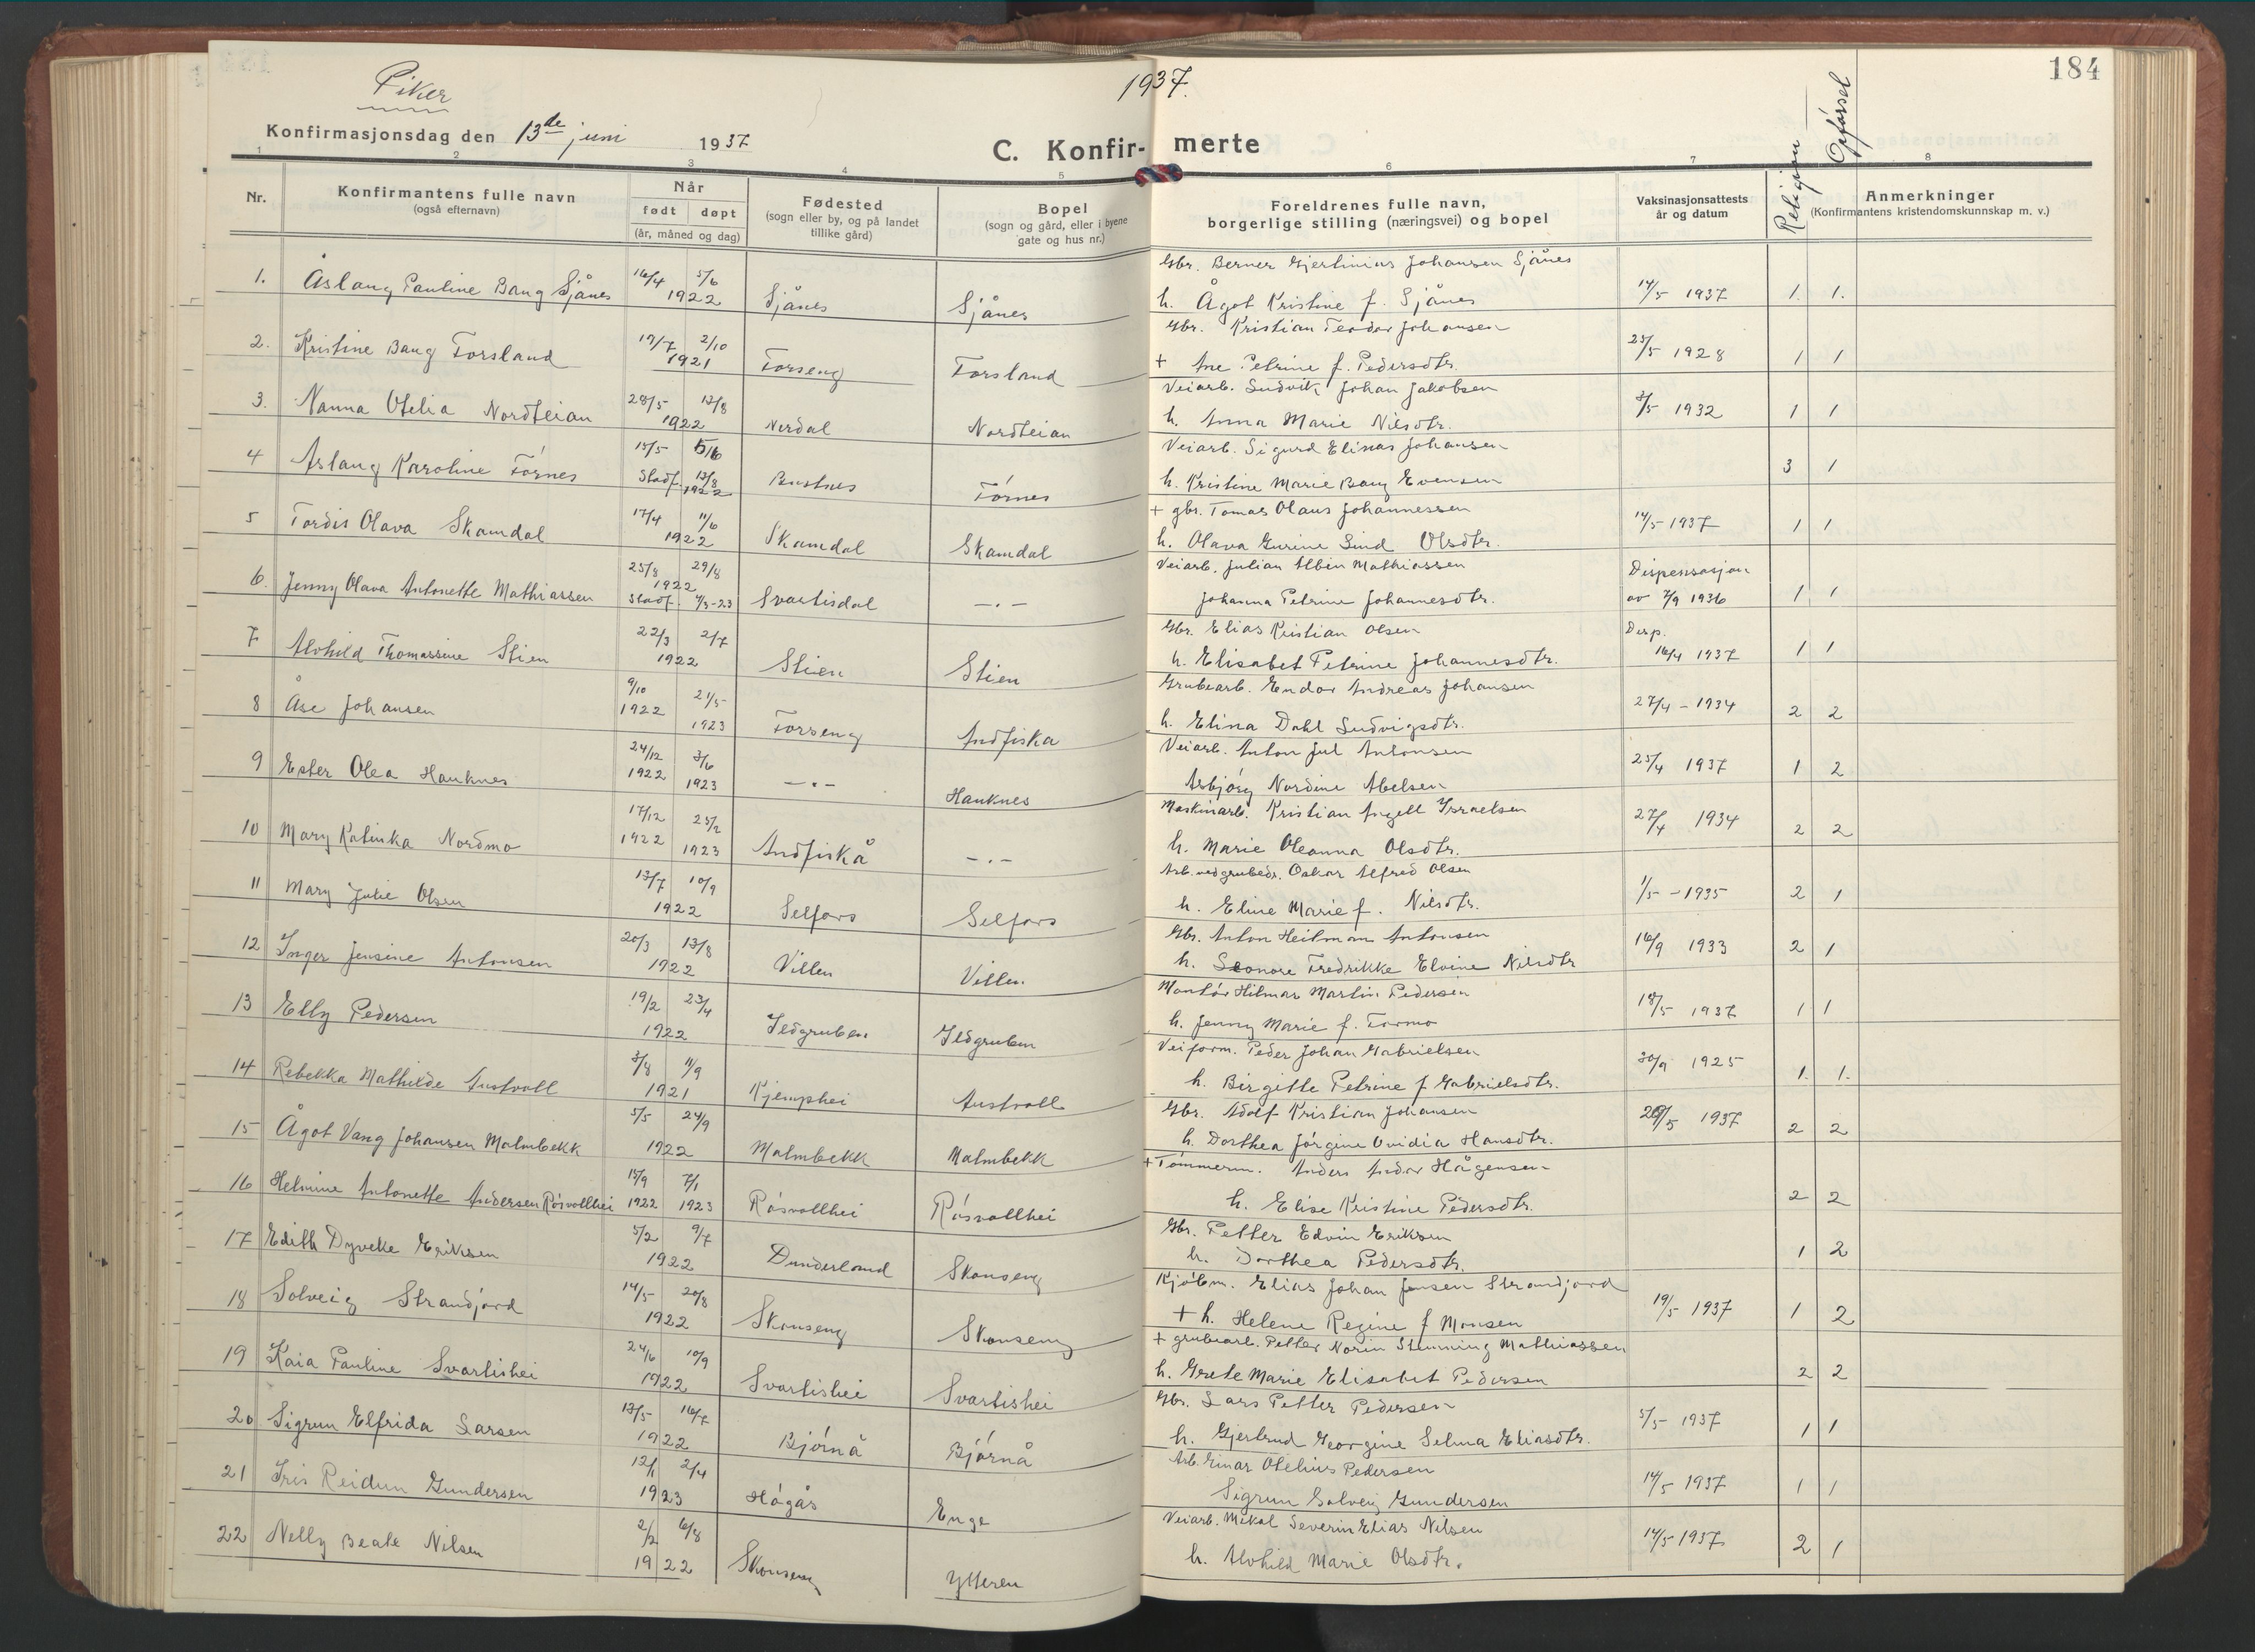 Piker
1937.
184
Konfirmasjonsdag den 13de juni 1937
C. Konfir- merte
Religion
Opførsel
1 2 3 4 5 6 7 8
Nr.
Konfirmantens fulle navn
(også efternavn)
Når
født døpt
(år, måned og dag)
Fødested
(sogn eller by, og på landet
tillike gård)
Bopel
(sogn og gård, eller i byene
gate og hus nr.)
Foreldrenes fulle navn,
borgerlige stilling (næringsvei) og bopel
Vaksinasjonsattests
år og datum
Anmerkninger
(Konfirmantens kristendomskunnskap m. v.)
Gbr. Berner Gjertinius Johansen Sjånes
1. Åslaug Pauline Bang Sjånes 16/4 5/6 1922 Sjånes Sjånes h. Ågot Kristine f. Sjånes 14/5 1937 1. 1.
Gbr. Kristian Teodor Johansen
2. Kristine Bang Forsland 19/7 2/10 1921 Forseng Forsland + Ane Petrine f. Pedersdtr. 25/5 1928 1 1
Veiarb. Ludvik Johan Jakobsen
3. Nanna Otelia Nordteian 28/5 13/8 1922 Nerdal Nordteian h. Anna Marie Nilsdtr. 3/5 1932 1 1
Veiarb. Sigurd Elisas Johansen
4 Aslaug Karoline Tørnes 15/5 5/6 Stadf. 13/8 1922 Bustnes Tørnes h. Kristine Marie Bang Evensen 3 1
+ gbr. Tomas Olaus Johannessen
5 Tordis Olava Skamdal 17/4 11/6 1922 Skamdal Skamdal h. Olava Gurine Lind Olsdtr. 14/5-1937 1 1
Veiarb. Julian Albin Mathiassen Dispensasjon
6. Jenny Olava Antonette Mathiassen 25/8 29/8 1922 Stadf. 4/3-23 Svartisdal —.— Johanna Petrine Johannesdtr. av 7/9 1936 1 1
Gbr. Elias Kristian Olsen Disp.
7 Alvhild Thomassine Stien 22/3 2/7 1922 Stien Stien h. Elisabet Petrine Johannesdtr. 16/4 1937 1 1
Grubearb. Endor Andreas Johansen
8 Åse Johansen 9/10 1922 21/5- 1923 Forseng Andfiska h. Elina Dahl Ludvigsdtr. 27/4 - 1934 2 2
Veiarb. Anton Jul Antonsen
9 Ester Olea Hauknes 24/12 1922 3/6 1923 —.— Hauknes Asbjørg Nordine Abelsen 25/4 1937 1 2
Maskinarb. Kristian Angell Israelsen
10 Mary Katinka Nordmo 17/12 1922 25/2 1923 Andfiskå —.— h. Marie Oleanna Olsdtr. 27/4 1934 2 2
Arb. ved grubedr. Oskar Alfred Olsen
11 Mary Julie Olsen 13/7 10/9 1922 Selfors Selfors h. Eline Marie f. Nilsdtr. 1/5 - 1935 2 1
Gbr. Anton Heitman Antonsen
12 Inger Jensine Antonsen 20/3 13/8 1922 Villen Villen h. Leonore Fredrikke Elvine Nilsdtr 16/9 1933 2 1
Montør Hilmar Martin Pedersen
13 Elly Pedersen 19/2 23/4 1922 Ildgruben Ildgruben h. Jenny Marie f. Formo 18/5 1937 1 1
Veiform. Peder Johan Gabrielsen
14 Rebekka Mathilde Austvoll 3/8 11/9 1921 Kjemphei Austvoll h. Birgitte Petrine f Gabrielsdtr. 30/9 1925 1. 1.
Gbr. Adolf Kristian Johansen
15 Ågot Vang Johansen Malmbekk 5/5 24/9 1922 Malmbekk Malmbekk h. Dorthea Jørgine Ovidia Hansdtr. 20/5 1937 2 2
+ Tømmerm. Anders Andor Hågensen
16 Helmine Antonette Andersen Røsvollhei 15/9 1922 7/1 1923 Røsvollhei Røsvollhei h. Elise Kristine Pedersdtr. 2 2
Gbr. Petter Edvin Eriksen
17 Edith Dyveke Eriksen 5/2 9/7 1922 Dunderland Skonseng h. Dorthea Pedersdtr. 1 2
Kjøbm. Elias Johan Jensen Strandjord
18 Solveig Strandjord 14/5 20/8 1922 Skonseng Skonseng + h. Helene Regine f Monsen 19/5 1937 1 2
+ grubearb. Petter Norin Stenning Mathiassen
19 Kaia Pauline Svartishei 24/6 10/9 1922 Svartishei Svartishei h. Grete Marie Elisabet Pedersen 2 2
Gbr. Lars Petter Pedersen
20 Sigrun Elfrida Larsen 13/5 16/7 1922 Bjørnå Bjørnå h. Gjertrud Georgine Selma Eliasdtr. 5/5- 1937 1 1
Arb. Einar Otelius Pedersen
21 Iris Reidun Gundersen 12/1 2/4 1923 Høgås Enge Sigrun Solveig Gundersen 14/5 1937 1 1
Veiarb. Mikal Severin Elias Nilsen
22 Nelly Beate Nilsen 2/2 6/8 1922 Skonseng Ytteren h. Alvhild Marie Olsdtr. 14/5 1937 2 1